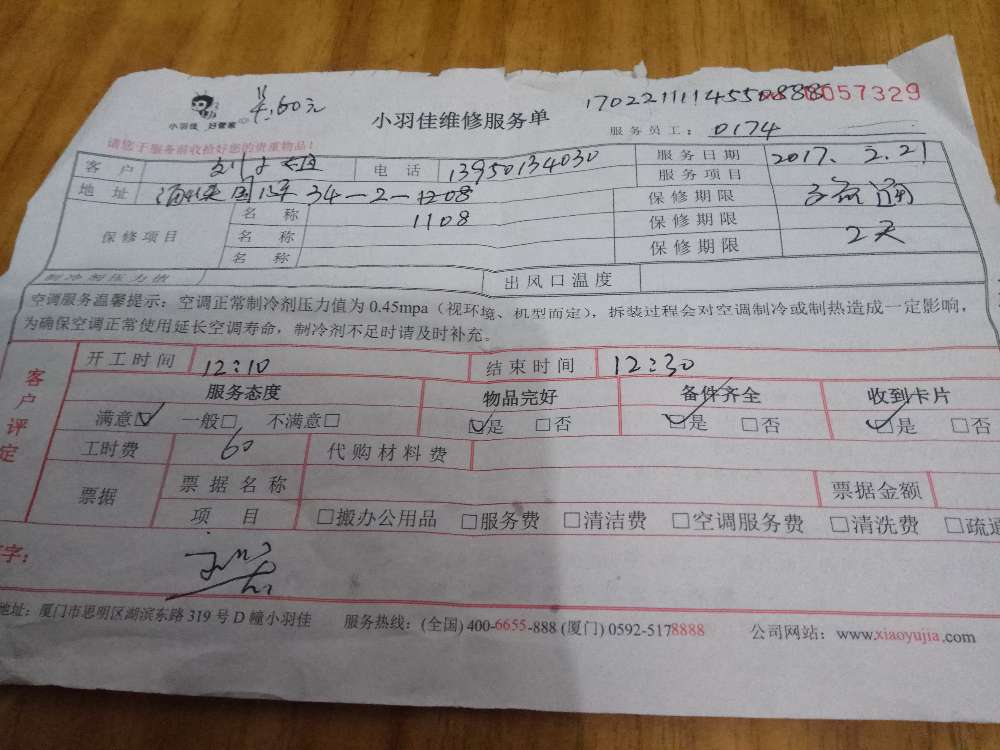 ¥:60元
小羽佳 好管家
小羽佳维修服务单
057329
服务员工： 0174
请您于服务前收拾好您的贵重物品！
客 户 电 话 13950134030 服务日期 2017. 2.21
服务项目
地 址 34-2-1208 保修期限
保修项目 名 称 1108 保修期限
名 称 保修期限 2天
名 称
制冷剂压力值 出风口温度
空调服务温馨提示：空调正常制冷剂压力值为 0.45mpa（视环境、机型而定），拆装过程会对空调制冷或制热造成一定影响，
为确保空调正常使用延长空调寿命，制冷剂不足时请及时补充。
客户评定
开工时间 12:10 结束时间 12:30
服务态度 物品完好 备件齐全 收到卡片
满意☑ 一般□ 不满意□ ☑是 □否 ☑是 □否 ☑是 □否
工时费 60 代购材料费
票据 票据名称 票据金额
项 目 □搬办公用品 □服务费 □清洁费 □空调服务费 □清洗费 □疏通
字：
地址：厦门市思明区湖滨东路 319 号 D 幢小羽佳 服务热线：(全国) 400-6655-888 (厦门) 0592-5178888 公司网站：www.xiaoyujia.com